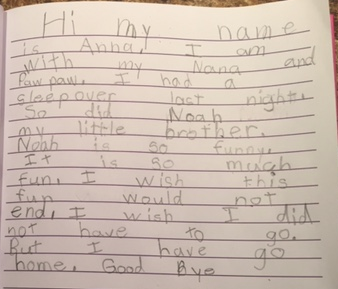 Hi my name
is Anna, I am
with my Nana and
Paw paw. I had a
sleepover last night.
So did Noah
my little brother.
Noah is so funny.
It is so much
fun. I wish this
fun would not
end, I wish I did
not have to go.
But I have go
home. Good Bye